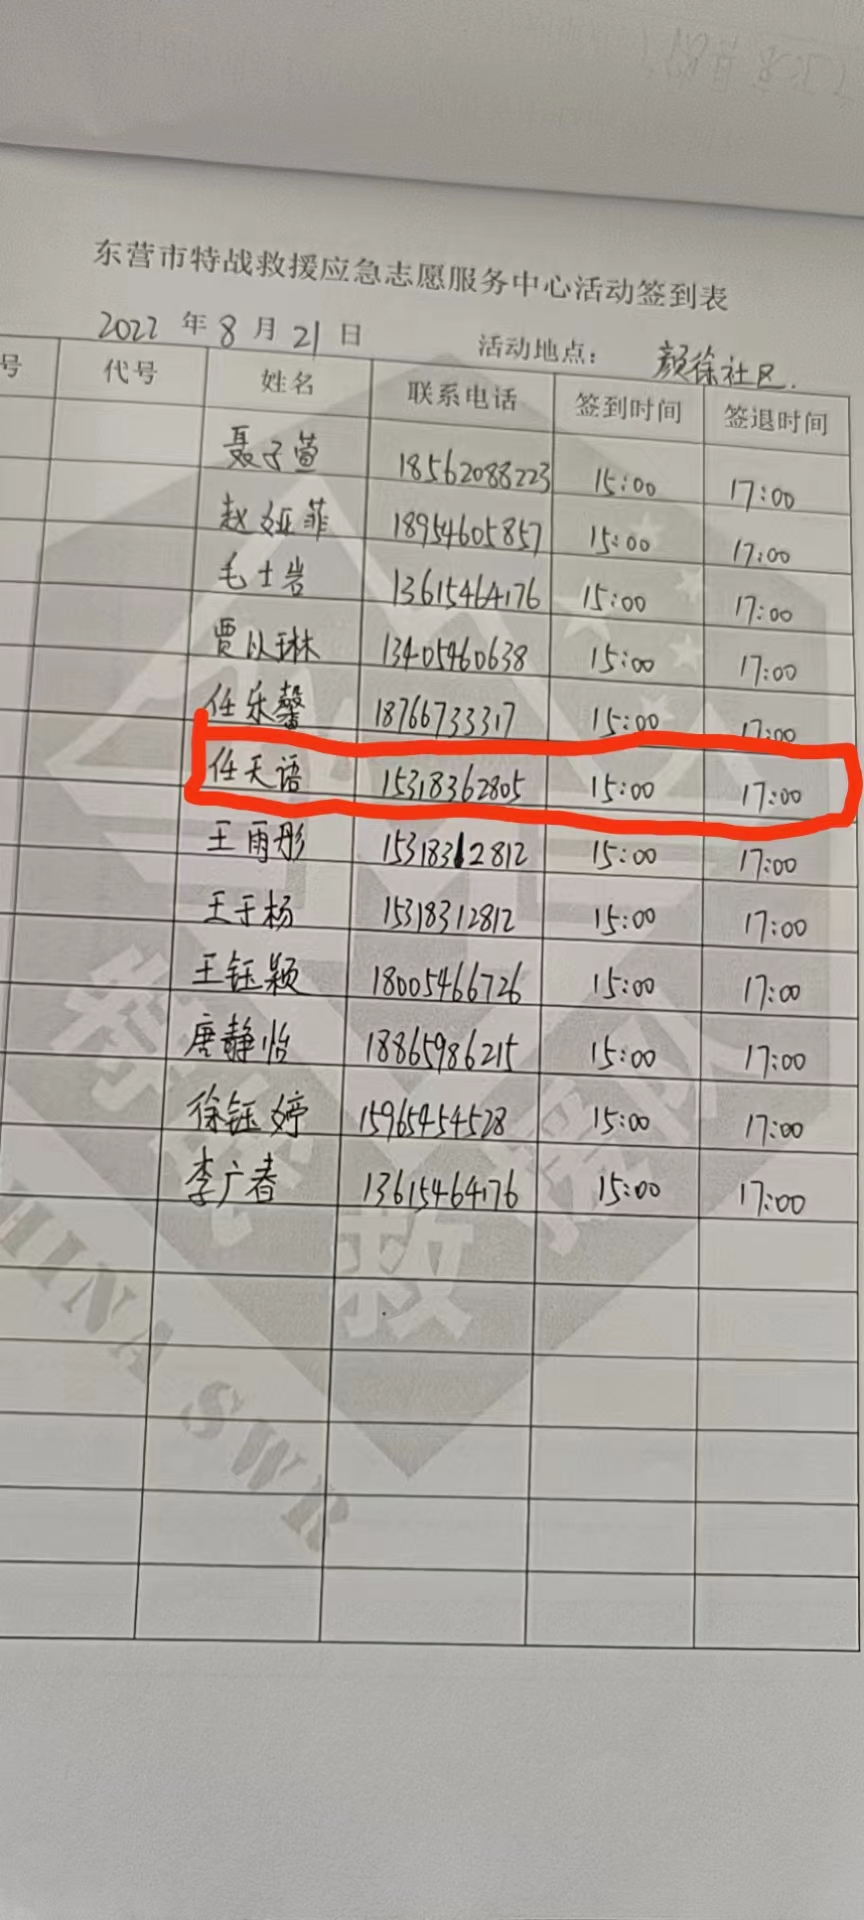 东营市特战救援应急志愿服务中心活动签到表
2022 年 8 月 21 日 活动地点： 颜徐社区.
号 代号 姓名 联系电话 签到时间 签退时间
聂子萱 18562088223 15:00 17:00
赵娅菲 18954605857 15:00 17:00
毛士岩 13615464176 15:00 17:00
贾以琳 13405460638 15:00 17:00
任乐馨 18766733317 15:00 17:00
任天语 15318362805 15:00 17:00
王雨彤 15318312812 15:00 17:00
王于杨 15318312812 15:00 17:00
王钰颖 18005466726 15:00 17:00
唐静怡 18865986215 15:00 17:00
徐钰婷 15965454528 15:00 17:00
李广春 13615464176 15:00 17:00
特战救援队
CHINA SWR